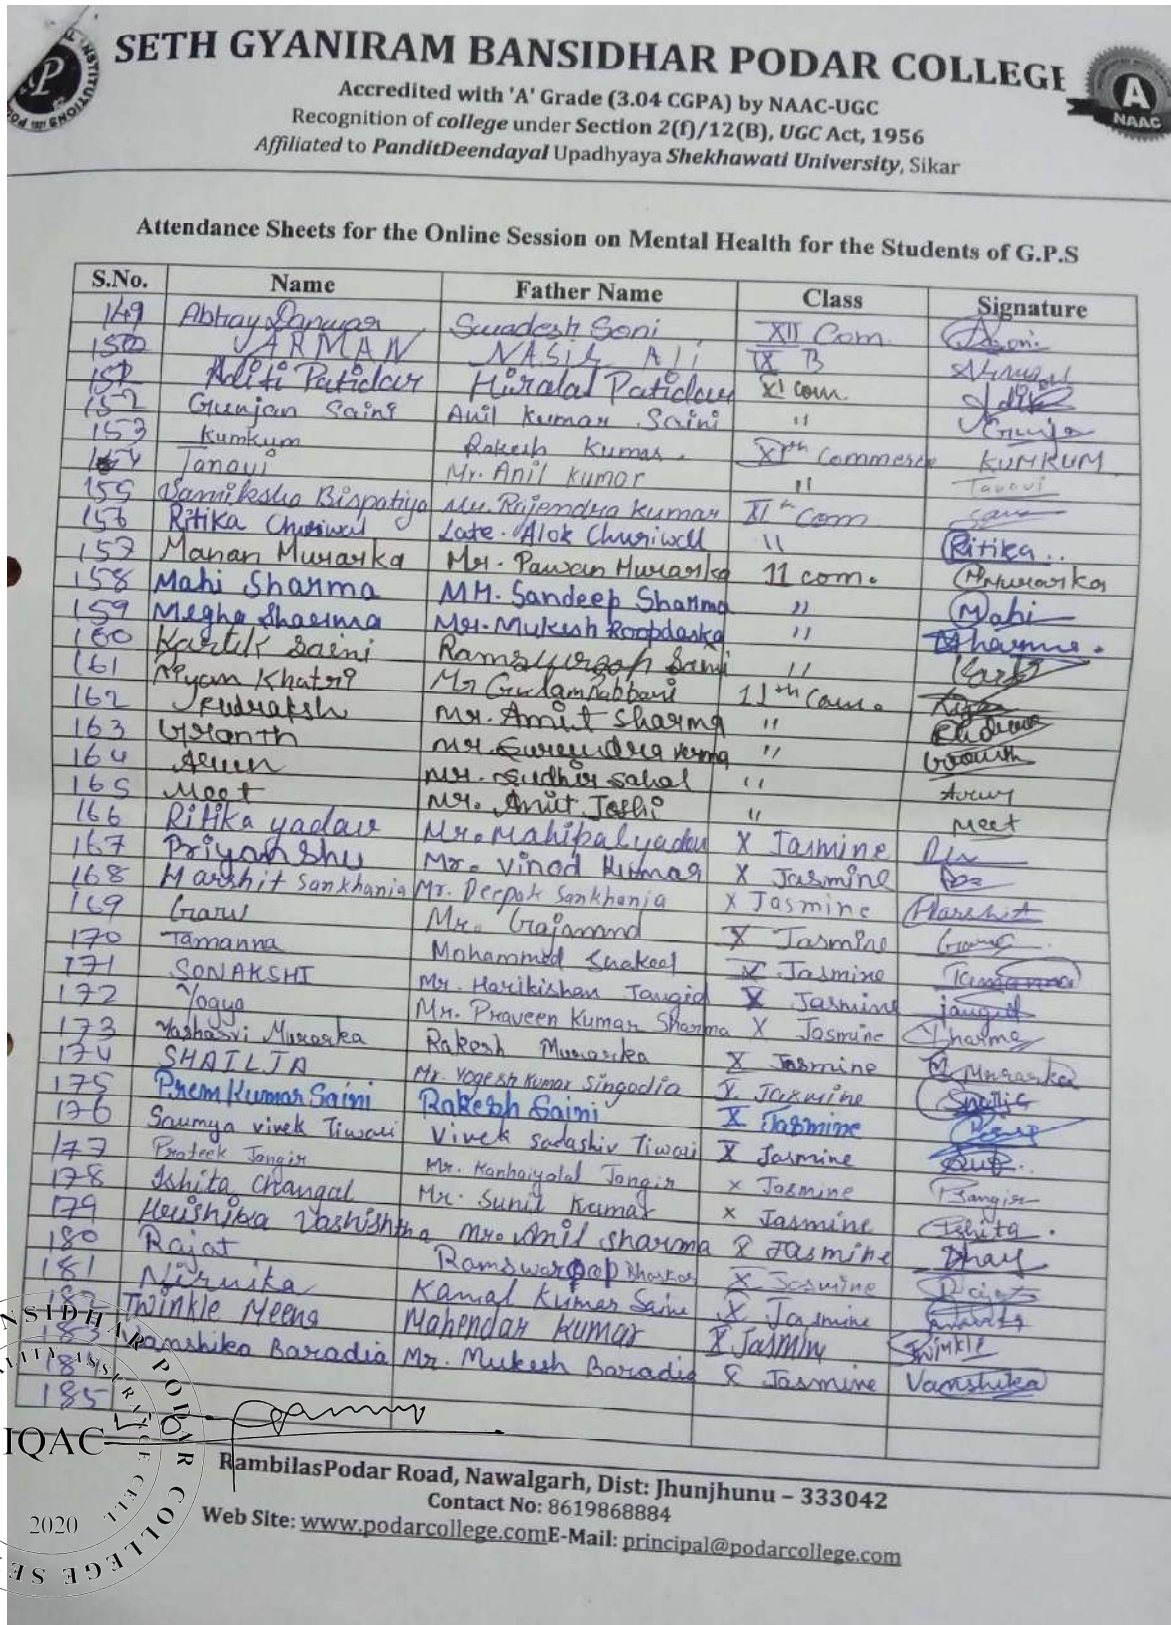 SETH GYANIRAM BANSIDHAR PODAR COLLEGE
Accredited with 'A' Grade (3.04 CGPA) by NAAC-UGC
Recognition of college under Section 2(f)/12(B), UGC Act, 1956
Affiliated to PanditDeendayal Upadhyaya Shekhawati University, Sikar
A
NAAC
Attendance Sheets for the Online Session on Mental Health for the Students of G.P.S
S.No. Name Father Name Class Signature
149 Abhay Swadesh Soni XII Com.
150 ARMAN NASIR Ali IX B
151 Aditi Patidar Hiralal Patidar XI com
152 Gunjan Saini Anil Kumar Saini "
153 Kumkum Rakesh Kumar. XIth Commerce KUMKUM
154 Tanavi Mr. Anil Kumar " Tanavi
155 Samiksha Bispatiya Mr. Rajendra Kumar XIth Com
156 Ritika Churiwal Late. Alok Churiwall " Ritika..
157 Manan Murarka Mr. Pawan Murarka 11 com. MMurarka
158 Mahi Sharma MR. Sandeep Sharma " Mahi
159 Megha Sharma Mr. Mukesh Roopdaska " Sharma.
160 Kartik Saini Saini "
161 Niyam Khatri Mr Gulam Rabbani 11th Com.
162 Rudraksh Mr. Amit Sharma "
163 Granth Mr. Surendra Verma "
164 Arun Mr. Sudhir Sahal "
165 Meet Mr. Amit Joshi " Meet
166 Ritika yadav Mr. Mahipal yadav X Jasmine
167 Priyanshu Mr. Vinod Kumar X Jasmine
168 Harshit Sankhania Mr. Deepak Sankhania X Jasmine Harshit
169 Garv Mr. Gajanand X Jasmine
170 Tamanna Mohammed Shakeel X Jasmine Tamanna
171 SONAKSHI Mr. Harikishan Jangid X Jasmine jangid
172 Yogya Mr. Praveen Kumar Sharma X Jasmine Sharma
173 Yashasvi Murarka Rakesh Murarka X Jasmine Murarka
174 SHAILJA Mr. Yogesh Kumar Singodia X Jasmine
175 Prem Kumar Saini Rakesh Saini X Jasmine
176 Saumya vivek Tiwari Vivek sadashiv Tiwari X Jasmine
177 Prateek Jangir Mr. Kanhaiyalal Jangir X Jasmine
178 Ishita Changal Mr. Sunil Kumar X Jasmine Ishita.
179 Vashishtha Mr. Anil Sharma X Jasmine
180 Rajat Ramswaroop Bhaskar X Jasmine Rajat
181 Nirvika Kamal Kumar Saini X Jasmine
182 Twinkle Meena Mahendar Kumar X JASMIN Twinkle
183 Vanshika Baradia Mr. Mukesh Baradia X Jasmine Vanshika
184
185
IQAC
2020
RambilasPodar Road, Nawalgarh, Dist: Jhunjhunu – 333042
Contact No: 8619868884
Web Site: www.podarcollege.comE-Mail: principal@podarcollege.com